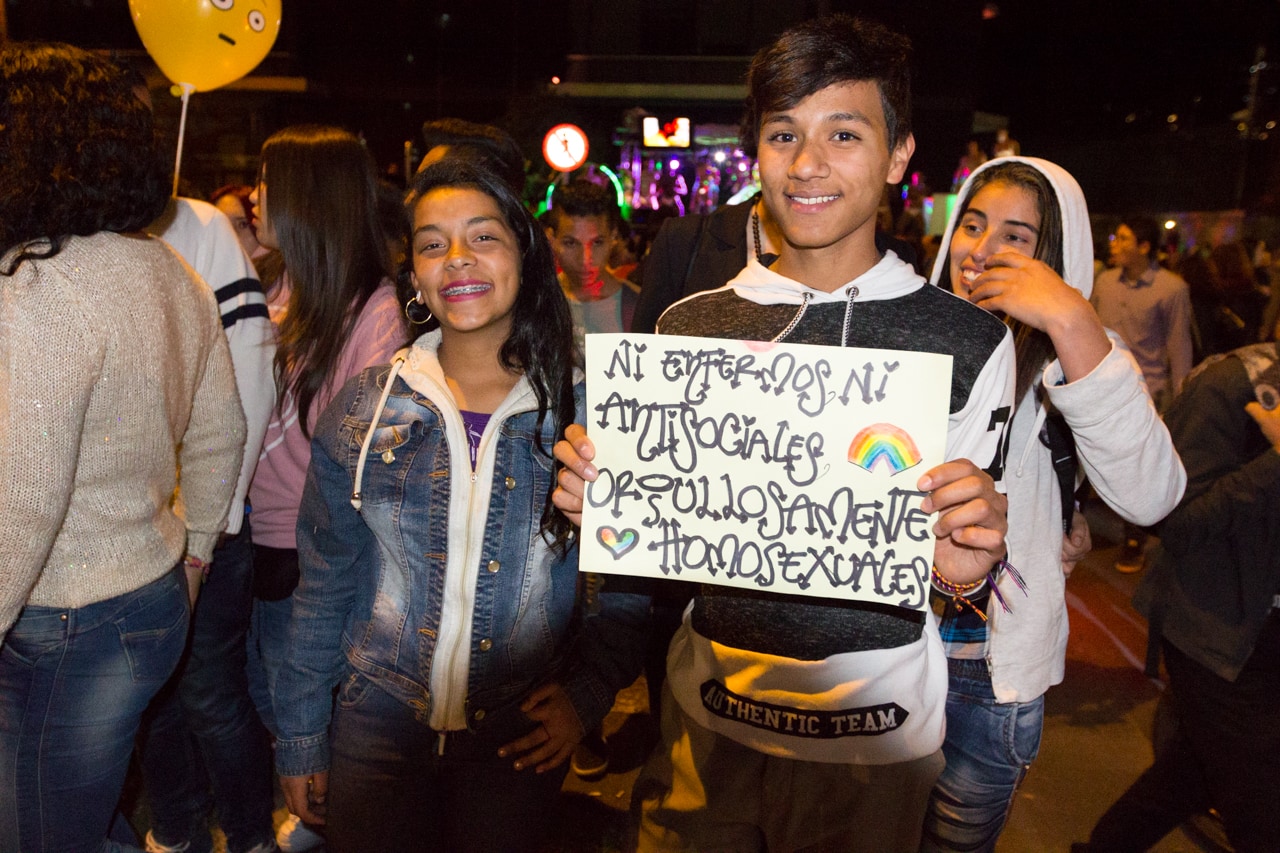 Ni ENfERMOS Ni
ANTiSOCiALES
ORGULLOSAMENTE
HOMOSEXUALES
7
AUTHENTIC TEAM